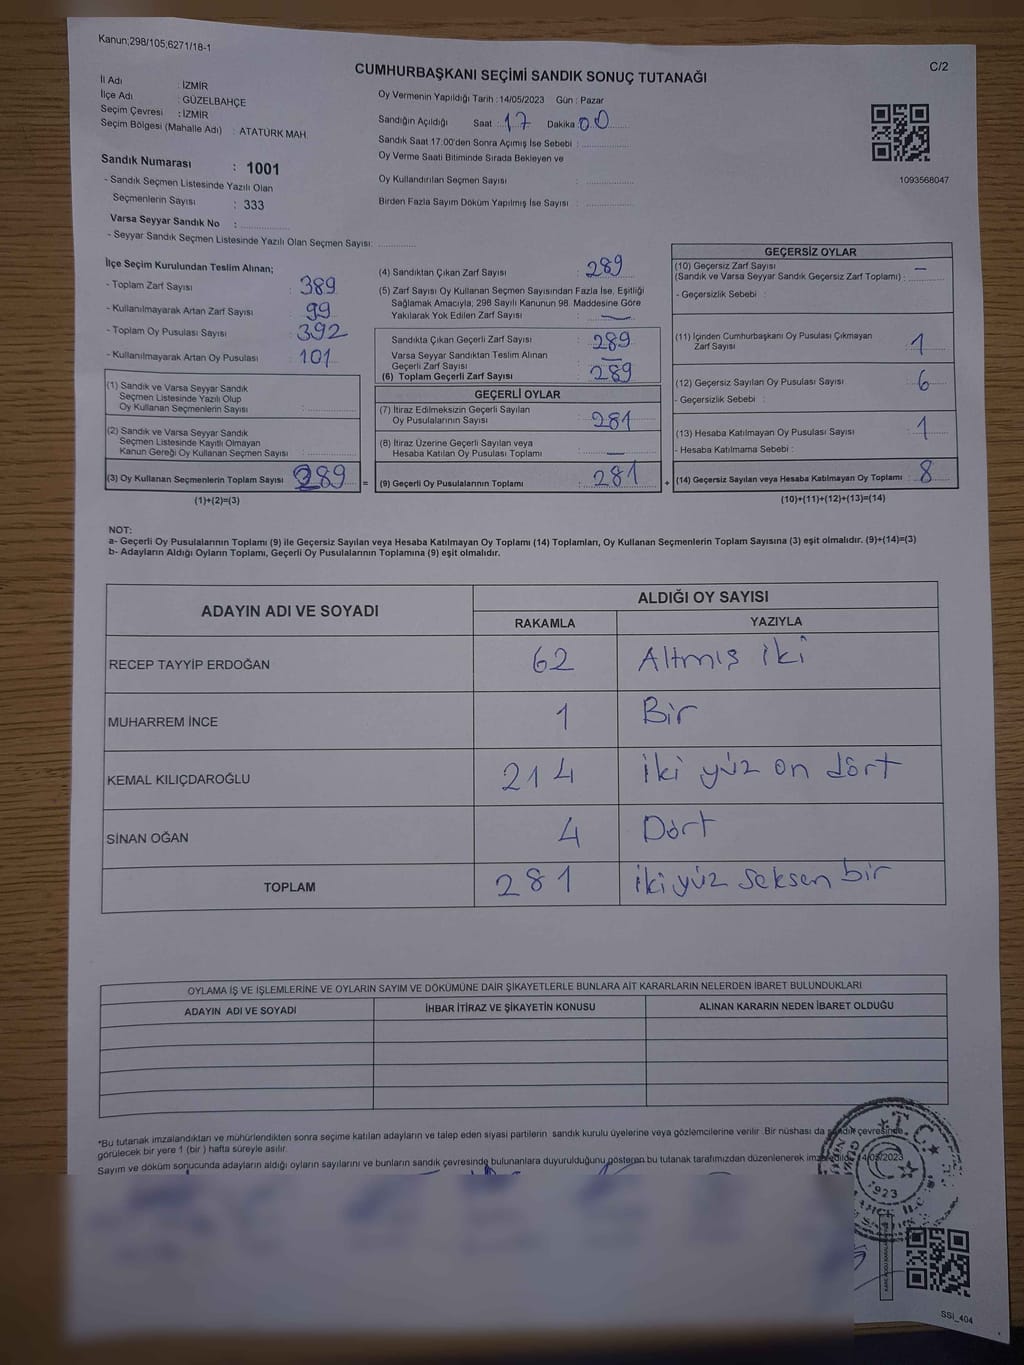 Kanun;298/105;6271/18-1
C/2
CUMHURBAŞKANI SEÇİMİ SANDIK SONUÇ TUTANAĞI
İl Adı : İZMİR
İlçe Adı : GÜZELBAHÇE
Seçim Çevresi : İZMİR
Seçim Bölgesi (Mahalle Adı) : ATATÜRK MAH.
Sandık Numarası : 1001
- Sandık Seçmen Listesinde Yazılı Olan
Seçmenlerin Sayısı : 333
Varsa Seyyar Sandık No :
- Seyyar Sandık Seçmen Listesinde Yazılı Olan Seçmen Sayısı:
Oy Vermenin Yapıldığı Tarih : 14/05/2023 Gün : Pazar
Sandığın Açıldığı Saat : 17 Dakika 00
Sandık Saat 17:00'den Sonra Açımış İse Sebebi :
Oy Verme Saati Bitiminde Sırada Bekleyen ve
Oy Kullandırılan Seçmen Sayısı :
Birden Fazla Sayım Döküm Yapılmış İse Sayısı :
1093568047
İlçe Seçim Kurulundan Teslim Alınan;
- Toplam Zarf Sayısı : 389
- Kullanılmayarak Artan Zarf Sayısı : 99
- Toplam Oy Pusulası Sayısı : 392
- Kullanılmayarak Artan Oy Pusulası : 101
(1) Sandık ve Varsa Seyyar Sandık
Seçmen Listesinde Yazılı Olup
Oy Kullanan Seçmenlerin Sayısı :
(2) Sandık ve Varsa Seyyar Sandık
Seçmen Listesinde Kayıtlı Olmayan
Kanun Gereği Oy Kullanan Seçmen Sayısı :
(3) Oy Kullanan Seçmenlerin Toplam Sayısı 289
(1)+(2)=(3)
(4) Sandıktan Çıkan Zarf Sayısı : 289
(5) Zarf Sayısı Oy Kullanan Seçmen Sayısından Fazla İse, Eşitliği
Sağlamak Amacıyla; 298 Sayılı Kanunun 98. Maddesine Göre
Yakılarak Yok Edilen Zarf Sayısı : —
Sandıkta Çıkan Geçerli Zarf Sayısı : 289
Varsa Seyyar Sandıktan Teslim Alınan
Geçerli Zarf Sayısı : —
(6) Toplam Geçerli Zarf Sayısı : 289
GEÇERLİ OYLAR
(7) İtiraz Edilmeksizin Geçerli Sayılan
Oy Pusulalarının Sayısı : 281
(8) İtiraz Üzerine Geçerli Sayılan veya
Hesaba Katılan Oy Pusulası Toplamı : —
= (9) Geçerli Oy Pusulalarının Toplamı : 281
GEÇERSİZ OYLAR
(10) Geçersiz Zarf Sayısı
(Sandık ve Varsa Seyyar Sandık Geçersiz Zarf Toplamı) : —
- Geçersizlik Sebebi :
(11) İçinden Cumhurbaşkanı Oy Pusulası Çıkmayan
Zarf Sayısı : 1
(12) Geçersiz Sayılan Oy Pusulası Sayısı : 6
- Geçersizlik Sebebi :
(13) Hesaba Katılmayan Oy Pusulası Sayısı : 1
- Hesaba Katılmama Sebebi :
+ (14) Geçersiz Sayılan veya Hesaba Katılmayan Oy Toplamı : 8
(10)+(11)+(12)+(13)=(14)
NOT:
a- Geçerli Oy Pusulalarının Toplamı (9) ile Geçersiz Sayılan veya Hesaba Katılmayan Oy Toplamı (14) Toplamları, Oy Kullanan Seçmenlerin Toplam Sayısına (3) eşit olmalıdır. (9)+(14)=(3)
b- Adayların Aldığı Oyların Toplamı, Geçerli Oy Pusulalarının Toplamına (9) eşit olmalıdır.
ADAYIN ADI VE SOYADI ALDIĞI OY SAYISI
RAKAMLA YAZIYLA
RECEP TAYYİP ERDOĞAN 62 Altmış iki
MUHARREM İNCE 1 Bir
KEMAL KILIÇDAROĞLU 214 iki yüz on dört
SİNAN OĞAN 4 Dört
TOPLAM 281 iki yüz seksen bir
OYLAMA İŞ VE İŞLEMLERİNE VE OYLARIN SAYIM VE DÖKÜMÜNE DAİR ŞİKAYETLERLE BUNLARA AİT KARARLARIN NELERDEN İBARET BULUNDUKLARI
ADAYIN ADI VE SOYADI İHBAR İTİRAZ VE ŞİKAYETİN KONUSU ALINAN KARARIN NEDEN İBARET OLDUĞU
*Bu tutanak imzalandıktan ve mühürlendikten sonra seçime katılan adayların ve talep eden siyasi partilerin sandık kurulu üyelerine veya gözlemcilerine verilir .Bir nüshası da sandık çevresinde
görülecek bir yere 1 (bir ) hafta süreyle asılır.
Sayım ve döküm sonucunda adayların aldığı oyların sayılarını ve bunların sandık çevresinde bulunanlara duyurulduğunu gösteren bu tutanak tarafımızdan düzenlenerek imza edildi. 14/05/2023
T.C.
1923
SSI_404